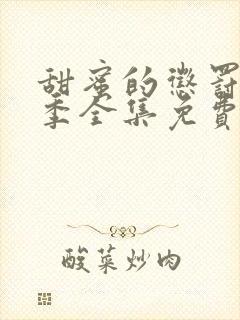 甜蜜的懲罰
季全集免費
酸菜炒肉